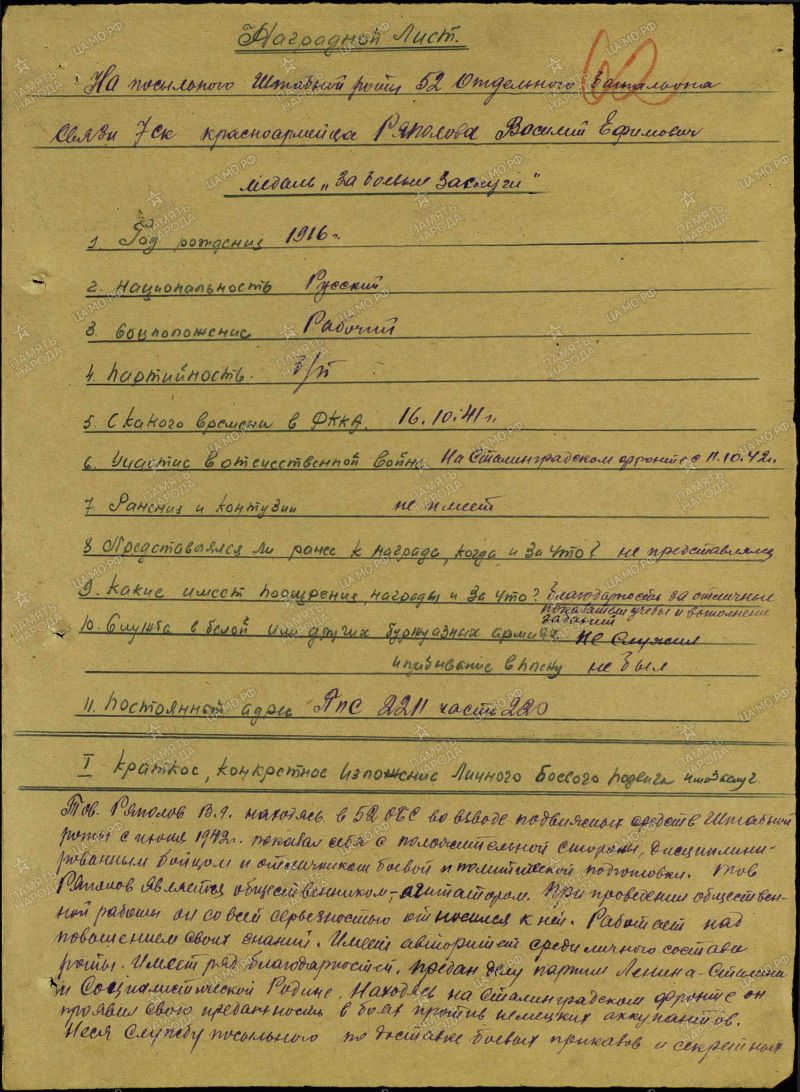 Наградной Лист.
62
На посыльного Штабной роты 52 Отдельного Батальона
связи 7ск красноармейца Ряполова Василий Ефимович
медаль „За боевые заслуги"
1. Год рождения 1916 г.
2. Национальность Русский
3. Соцположение Рабочий
4. Партийность. б/п
5. С какого времени в РККА. 16.10.41 г.
6. Участие в отечественной войне На Сталинградском фронте с 11.10.42 г.
7. Ранения и контузии не имеет
8. Представлялся ли ранее к награде, когда и за что? не представлялся
9. Какие имеет поощрения, награды и за что? Благодарность за отличные
показатели учебы и выполнение
заданий
10. Служба в белой или других буржуазных армиях не служил
и пребывание в плену не был
11. Постоянный адрес ППС 2211 часть 220
I Краткое, конкретное изложение личного боевого подвига или заслуг
Тов. Ряполов В.Я. находясь в 52 ОБС во взводе подвижных средств Штабной
роты с июня 1942г. показал себя с положительной стороны, дисциплини-
рованным бойцом и отличником боевой и политической подготовки. Тов
Ряполов является общественником-агитатором. При проведении обществен-
ной работы он со всей серьезностью относился к ней. Работает над
повышением своих знаний. Имеет авторитет среди личного состава
роты. Имеет ряд благодарностей. Предан делу партии Ленина-Сталина
и Социалистической Родине. Находясь на Сталинградском фронте он
проявил свою преданность в боях против немецких аккупантов.
Неся службу посыльного по доставке боевых приказов и секретных